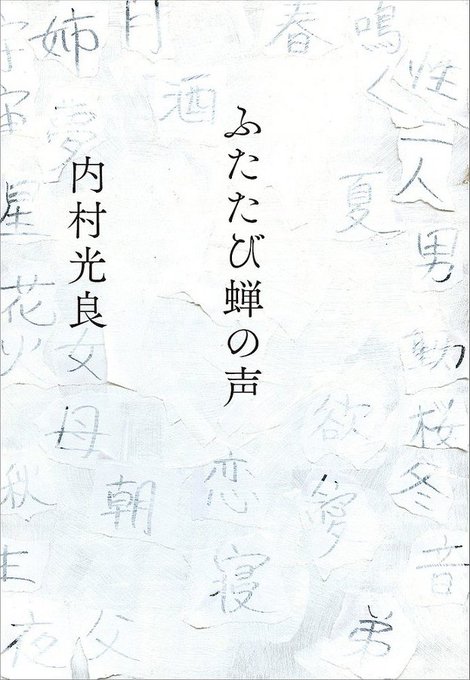 ふたたび蝉の声
内村光良
鳴
性
春
月
姉
宇宙
酒
夢
二人
夏
男
星
花火
女
動
欲
桜
母
恋
愛
冬
秋
朝
音
寝
生
夜
父
弟